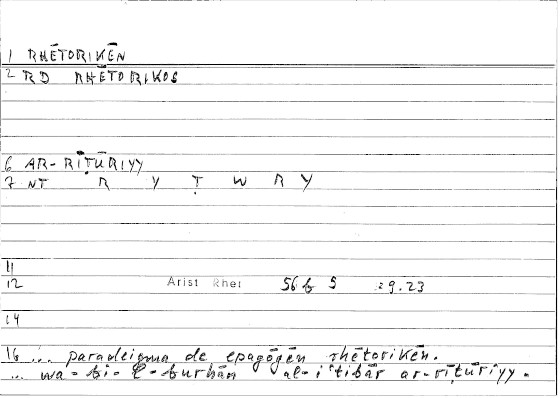 1 RHĒTORIKĒN
2 RD RHĒTORIKOS
6 AR-RĪṬŪRIYY
7 NT R Y Ṭ W R Y
11
12 Arist Rhet 56 b 5 29.23
14
16 ... paradeigma de epagōgēn rhētorikēn.
... wa-bi-l-burhān al-iʿtibār ar-rīṭūrīyy.